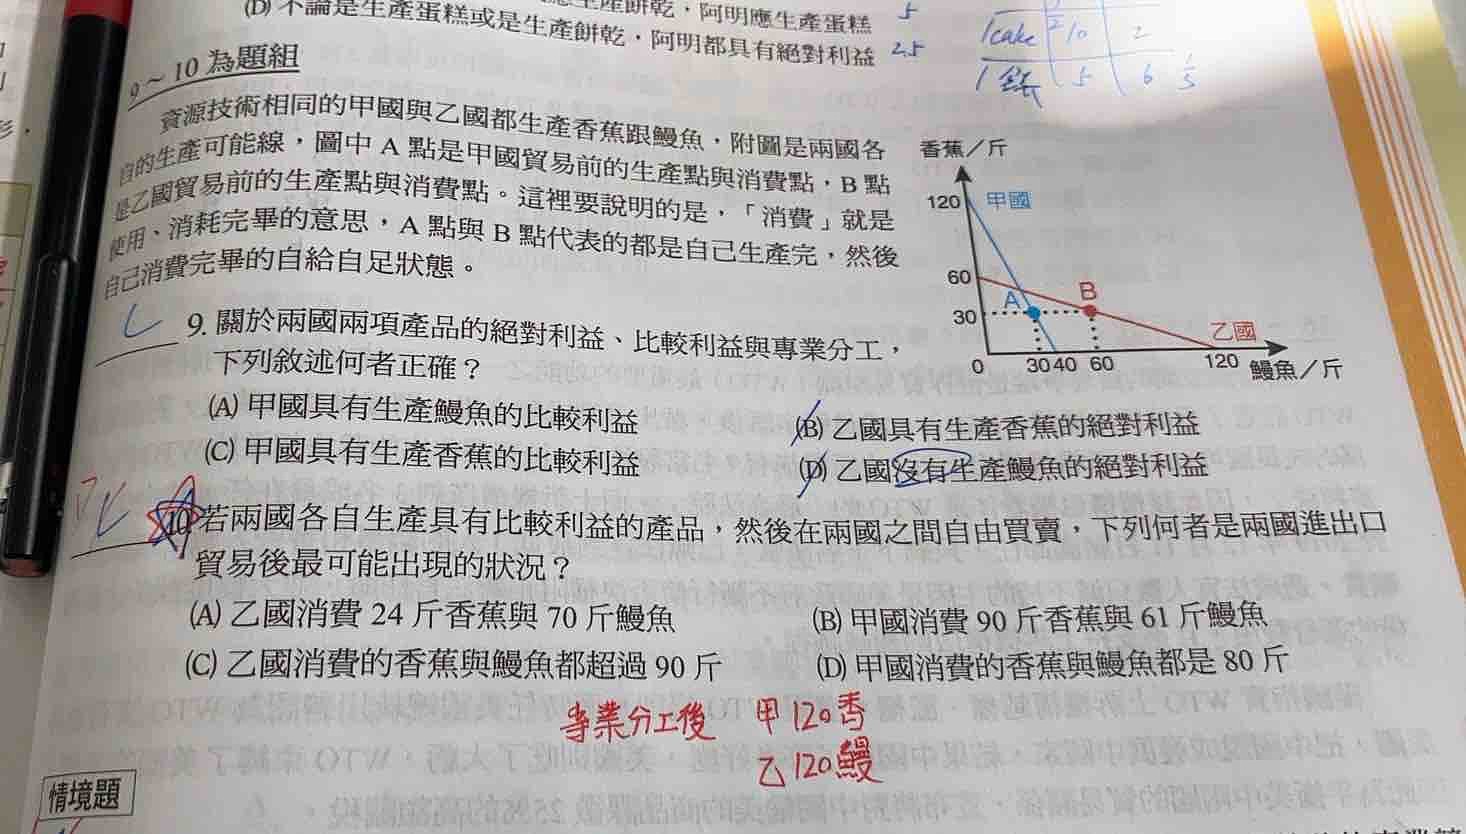 生產餅乾，阿明應生產蛋糕 5
(D) 不論是生產蛋糕或是生產餅乾，阿明都具有絕對利益 2.5
1cake 10 2
5 6 1/5
9～10 為題組
資源技術相同的甲國與乙國都生產香蕉跟鰻魚，附圖是兩國各
自的生產可能線，圖中 A 點是甲國貿易前的生產點與消費點，B 點
是乙國貿易前的生產點與消費點。這裡要說明的是，「消費」就是
使用、消耗完畢的意思，A 點與 B 點代表的都是自己生產完，然後
自己消費完畢的自給自足狀態。
香蕉／斤
120 甲國
60
A B
30
乙國
0 30 40 60 120 鰻魚／斤
C 9. 關於兩國兩項產品的絕對利益、比較利益與專業分工，
下列敘述何者正確？
(A) 甲國具有生產鰻魚的比較利益 (B) 乙國具有生產香蕉的絕對利益
(C) 甲國具有生產香蕉的比較利益 (D) 乙國沒有生產鰻魚的絕對利益
10. 若兩國各自生產具有比較利益的產品，然後在兩國之間自由買賣，下列何者是兩國進出口
貿易後最可能出現的狀況？
(A) 乙國消費 24 斤香蕉與 70 斤鰻魚 (B) 甲國消費 90 斤香蕉與 61 斤鰻魚
(C) 乙國消費的香蕉與鰻魚都超過 90 斤 (D) 甲國消費的香蕉與鰻魚都是 80 斤
專業分工後 甲120香
乙120鰻
情境題